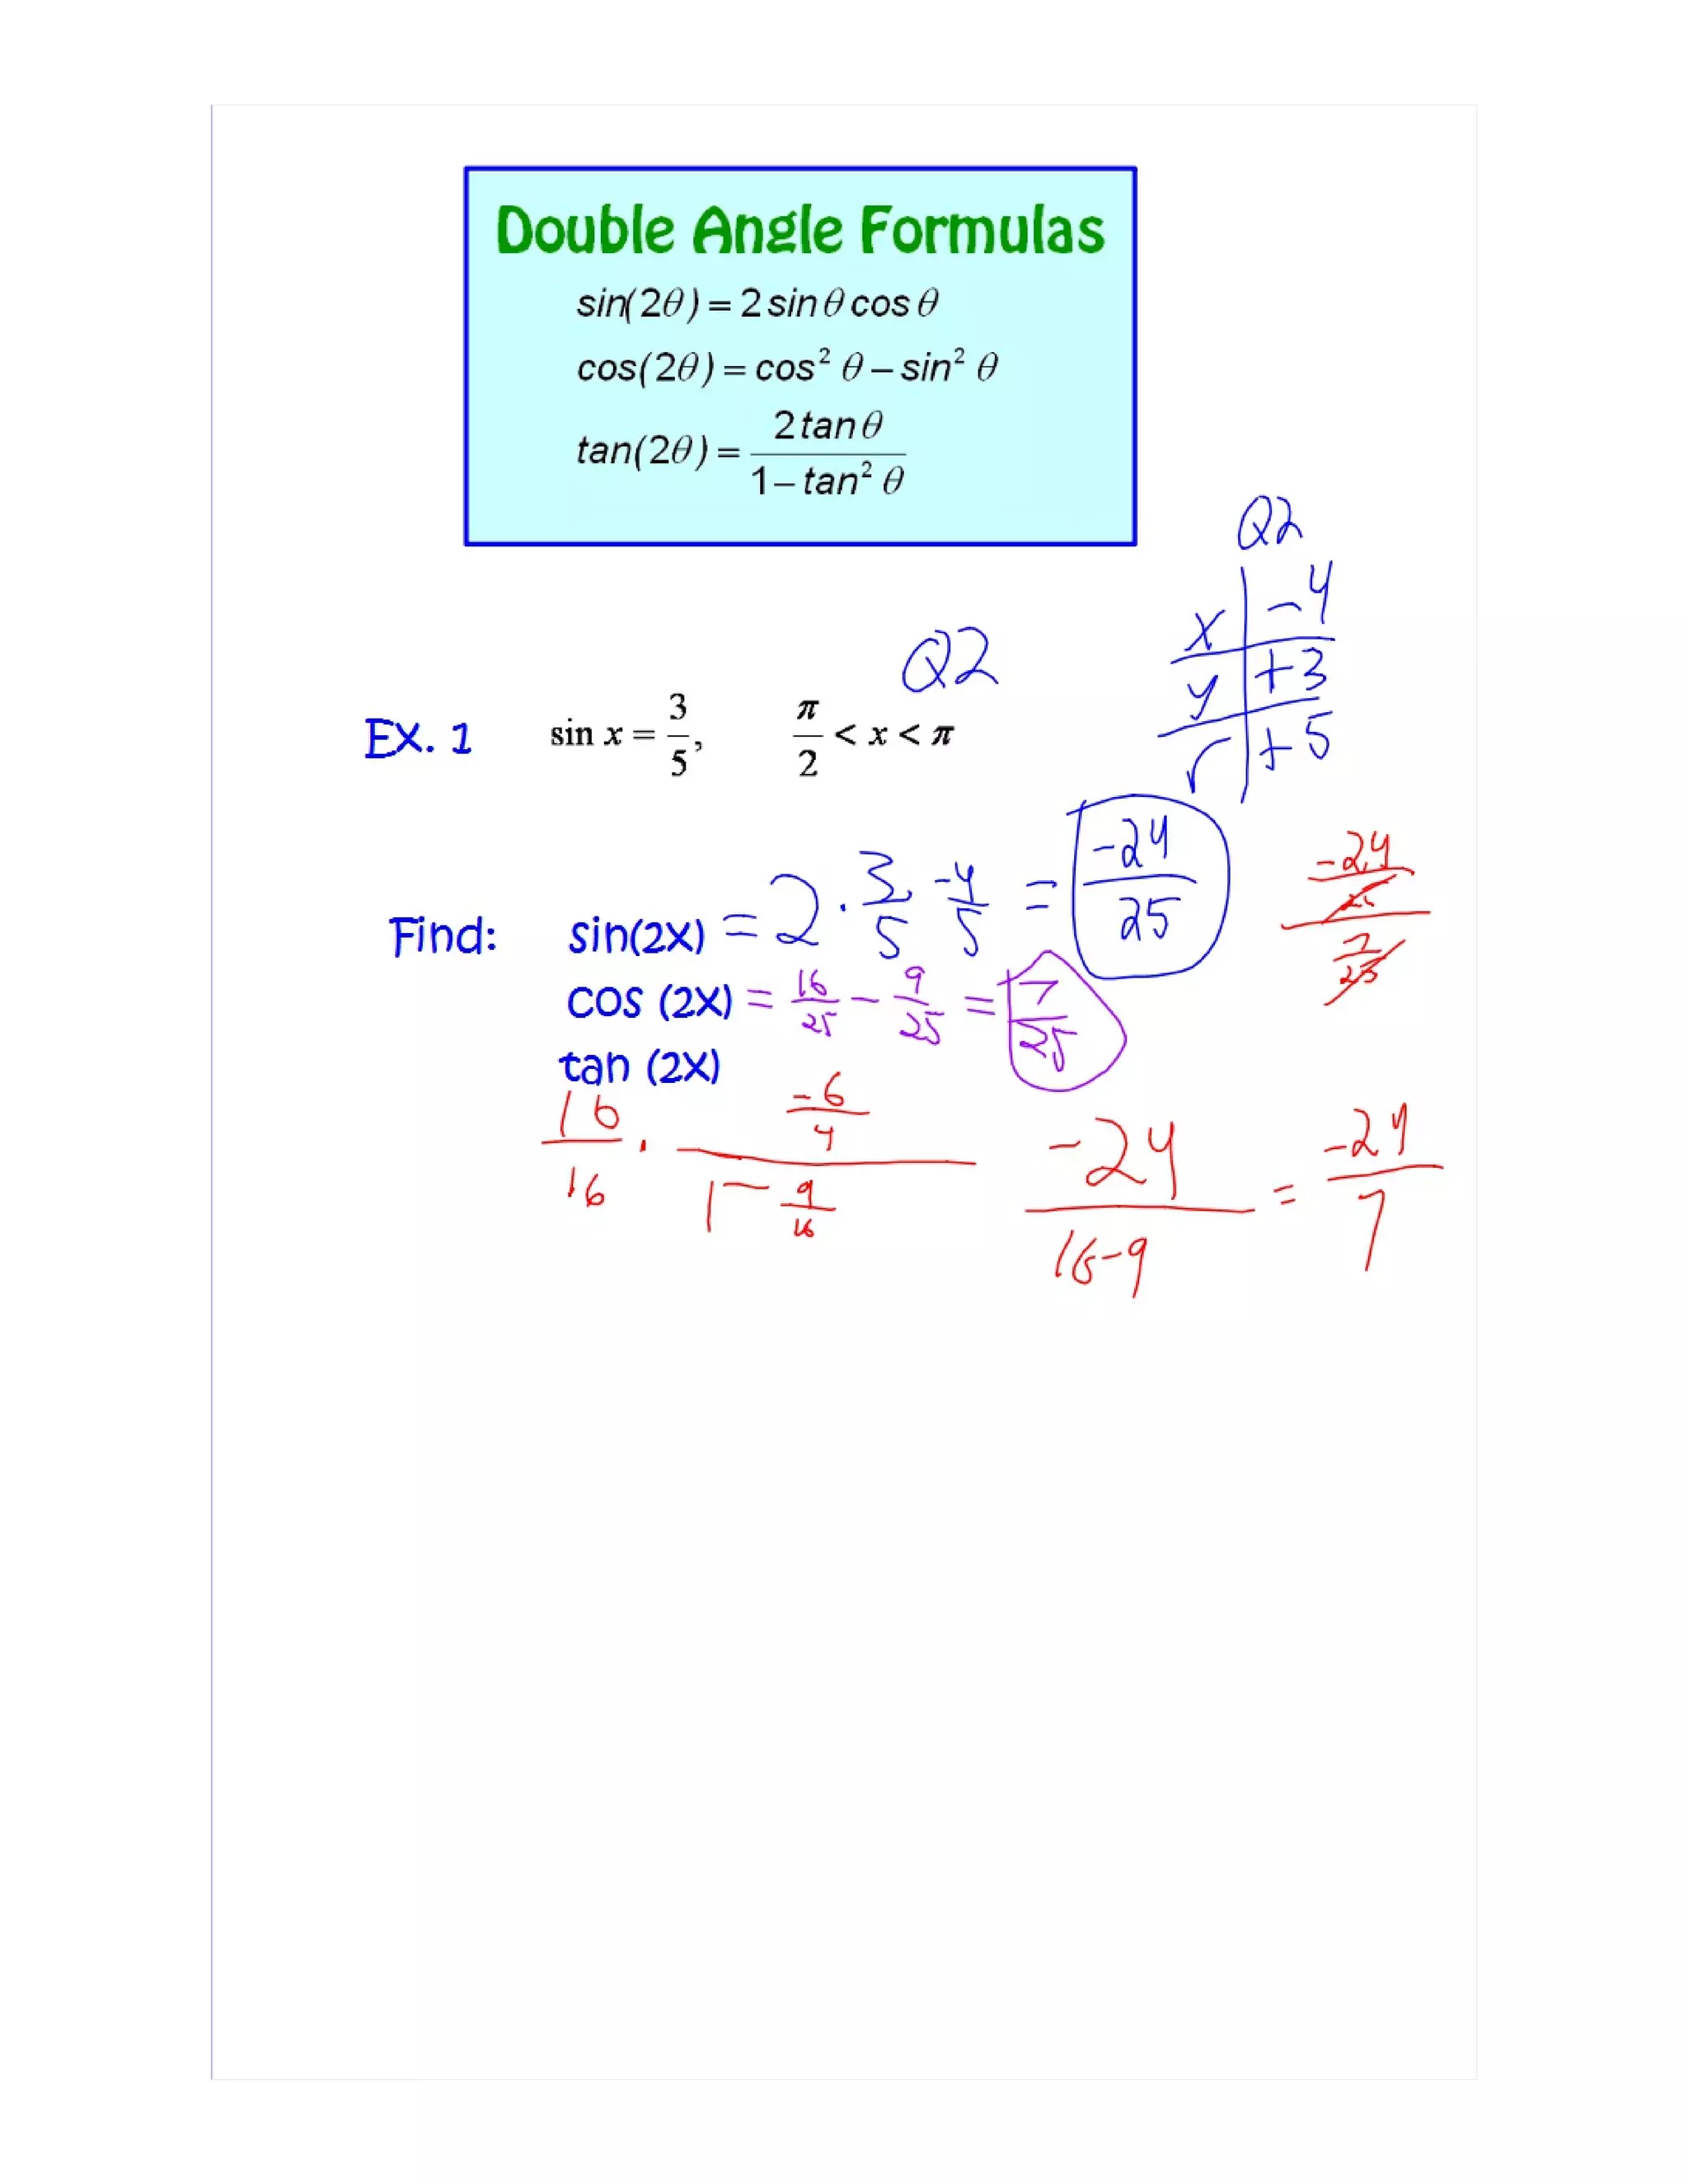 Double Angle Formulas
sin(2θ) = 2 sin θ cos θ
cos(2θ) = cos² θ – sin² θ
tan(2θ) = 2 tan θ / 1 – tan² θ
Q2
x | -4
y | +3
r | +5
Q2
EX. 1 sin x = 3/5, π/2 < x < π
Find: sin(2X) = 2 · 3/5 -4/5 = -24/25
cos (2X) = 16/25 - 9/25 = 7/25
tan (2X)
-24/25 / 7/25
16/16 · -6/4 / 1 - 9/16 -24 / 16-9 = -24/7